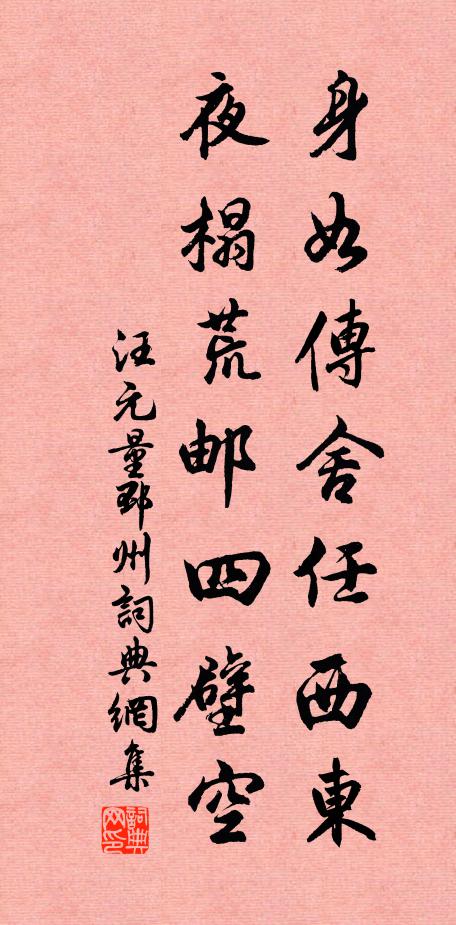 身如傳舍任西東
夜榻荒邮四壁空
汪元量邳州詞典網集
詞典网印